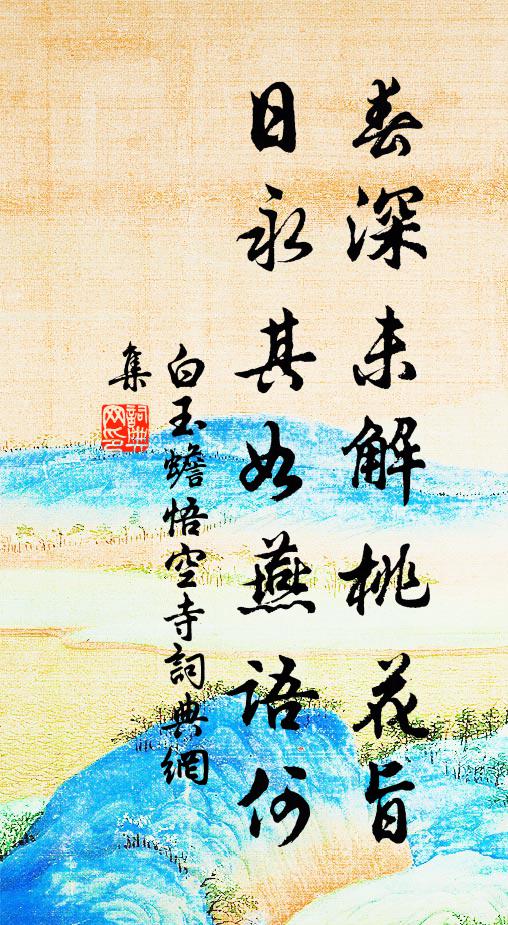 春深未解桃花旨
日永其如燕語何
白玉蟾悟空寺詞典網
集
詞典網印